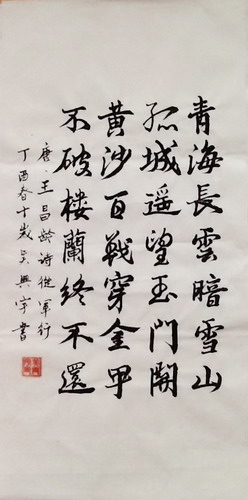 青海長雲暗雪山
孤城遥望玉門關
黄沙百戰穿金甲
不破樓蘭終不還
唐·王昌龄詩從軍行
丁酉春十歲吴興宇書